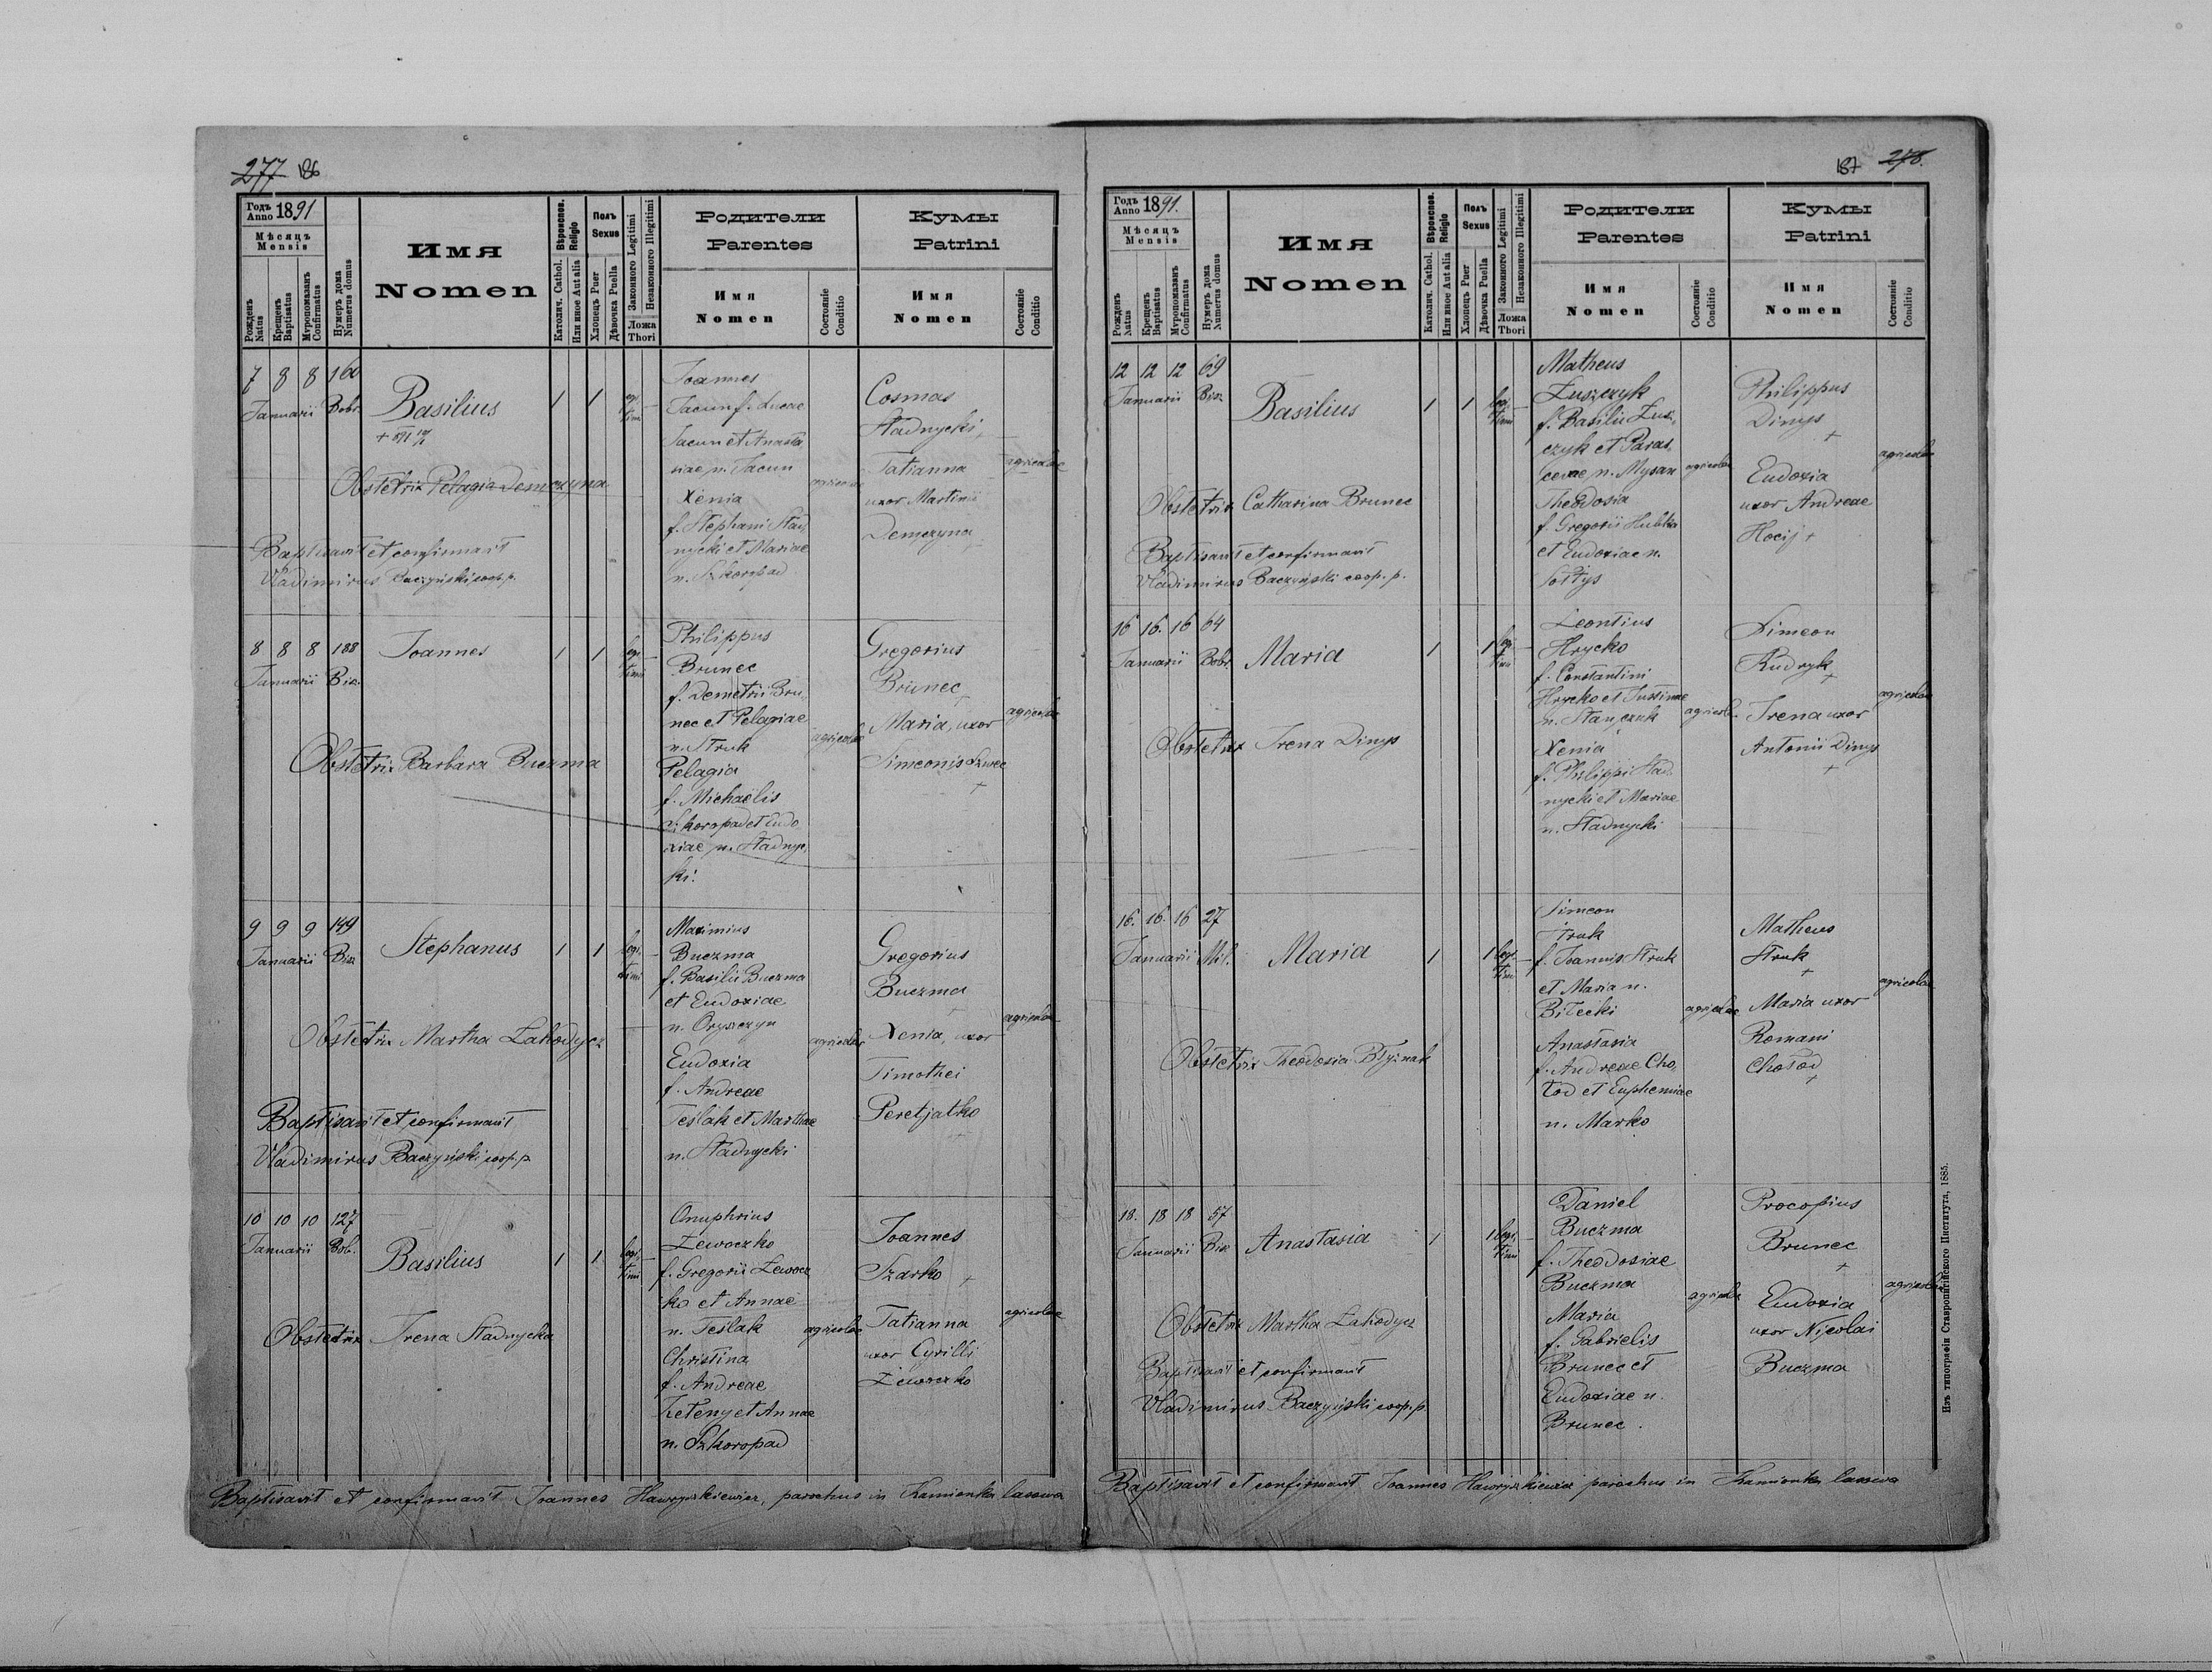 277 186
Годъ Anno 1891
Мѣсяцъ Mensis
Рожденъ Natus
Крещенъ Baptisatus
Мѵропомазанъ Confirmatus
Нумеръ дома Numerus domus
Имя Nomen
Вѣроиспов. Religio
Католич. Cathol.
Или иное Aut alia
Полъ Sexus
Хлопецъ Puer
Дѣвочка Puella
Законного Legitimi
Незаконного Illegitimi
Ложа Thori
Родители Parentes
Имя Nomen
Состояніе Conditio
Кумы Patrini
Имя Nomen
Состояніе Conditio
7 8 8 160
Januarii Bobr.
Basilius
1 1 legi
timi
Joannes
Jacun f. Lucae
Jacun et Anasta
siae n. Jacun
Xenia
f. Stephani Stad
nycki et Mariae
n. Szkoropad
agricolae
Cosmas
Stadnycki +
Tatianna
uxor Martini
Demczyna
agricolae
Obstetrix Pelagia Demczyna
Baptisavit et confirmavit
Vladimirus Baczyński coop. p.
8 8 8 188
Januarii Bis.
Joannes
1 1 legi
timi
Philippus
Brunec
f. Demetrii Bru
nec et Pelagiae
n. Struk
Pelagia
f. Michaelis
Szkoropad et Eudo
xiae n. Stadnyc
ki.
agricolae
Gregorius
Brunec +
Maria, uxor
Simeonis
+
agricolae
Obstetrix Barbara Buczma
9 9 9 149
Januarii Bisz
Stephanus
1 1 legi
timi
Maximius
Buczma
f. Basilii Buczma
et Eudoxiae
n. Oryszczyn
Eudoxia
f. Andreae
Teślak et Marthae
n. Stadnycki
agricolae
Gregorius
Buczma
+
Xenia, uxor
Timothei
Peretjatko
+
agricolae
Obstetrix Martha Lahodycz
Baptisavit et confirmavit
Vladimirus Baczyński coop. p.
10 10 10 127
Januarii Bob.
Basilius
1 1 legi
timi
Onuphrius
Lewoczko
f. Gregorii Lewocz
ko et Annae
n. Teślak
Christina
f. Andreae
Zeteny et Annae
n. Szkoropad
agricolae
Joannes
Szarko +
Tatianna
uxor Cyrilli
Lewoczko
agricolae
Obstetrix Irena Stadnycka
Baptisavit et confirmavit Joannes Hawryszkiewicz, parochus in Kamionka lasowa
187 278.
Годъ Anno 1891.
Мѣсяцъ Mensis
Рожденъ Natus
Крещенъ Baptisatus
Мѵропомазанъ Confirmatus
Нумеръ дома Numerus domus
Имя Nomen
Вѣроиспов. Religio
Католич. Cathol.
Или иное Aut alia
Полъ Sexus
Хлопецъ Puer
Дѣвочка Puella
Законного Legitimi
Незаконного Illegitimi
Ложа Thori
Родители Parentes
Имя Nomen
Состояніе Conditio
Кумы Patrini
Имя Nomen
Состояніе Conditio
12 12 12 69
Januarii Bisz
Basilius
1 1 legi
timi
Matheus
Łuszczyk
f. Basilii Łusz
czyk et Paras
cevae n. Mysak
Theodosia
f. Gregorii Hubka
et Eudoxiae n.
Sołtys
agricolae
Philippus
Dinys
+
Eudoxia
uxor Andreae
Hocij +
agricolae
Obstetrix Catharina Brunec
Baptisavit et confirmavit
Vladimirus Baczyński coop. p.
16 16. 16 64
Januarii Bobr.
Maria
1 1 legi
timi
Leontius
Hrycko
f. Constantini
Hrycko et Justinae
n. Stańczuk
Xenia
f. Philippi Stad
nycki et Mariae
n. Stadnycki
agricolae
Simeon
Kudryk
+
Irena uxor
Antonii Dinys
+
agricolae
Obstetrix Irena Dinys
16. 16. 16 27
Januarii Mil.
Maria
1 1 legi
timi
Simeon
Struk
f. Joannis Struk
et Maria n.
Biłecki
Anastasia
f. Andreae Cho
łod et Euphemiae
n. Marko
agricolae
Matheus
Struk
+
Maria uxor
Romani
Chołod
+
agricolae
Obstetrix Theodosia Błyźnak
18. 18 18 57
Januarii Bisz
Anastasia
1 1 legi
timi
Daniel
Buczma
f. Theodosiae
Buczma
Maria
f. Gabrielis
Brunec et
Eudoxiae n.
Brunec.
agricolae
Procopius
Brunec
+
Eudoxia
uxor Nicolai
Buczma
agricolae
Obstetrix Martha Lahodycz
Baptisavit et confirmavit
Vladimirus Baczyński coop. p.
Baptisavit et confirmavit Joannes Hawryszkiewicz parochus in Kamionka lasowa
Изъ типографіи Ставропигійского Института, 1885.